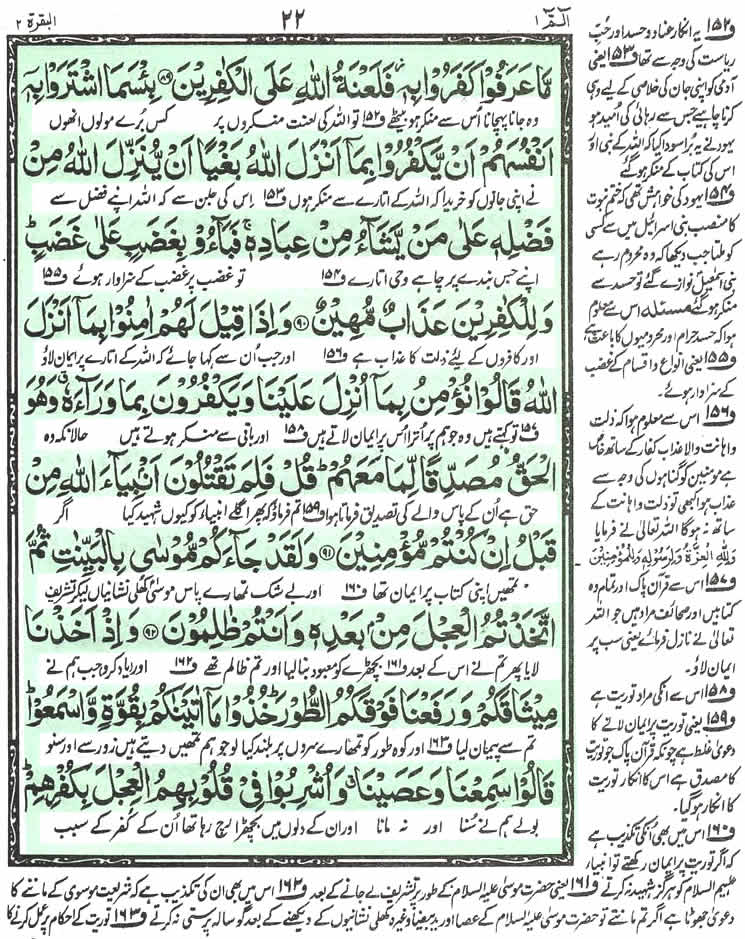 البقرة ٢
٢٢
الٓمّٓ ١
مَّا عَرَفُوْا كَفَرُوْا بِهٖ ؗ فَلَعْنَةُ اللّٰهِ عَلَى الْكٰفِرِیْنَ ۝۸۹ بِئْسَمَا اشْتَرَوْا بِهٖۤ
وہ جانا پہچانا اُس سے منکر ہو بیٹھے ف۱۵۲ تو اللہ کی لعنت منکروں پر کس بُرے مولوں انھوں
اَنْفُسَهُمْ اَنْ یَّكْفُرُوْا بِمَاۤ اَنْزَلَ اللّٰهُ بَغْیًا اَنْ یُّنَزِّلَ اللّٰهُ مِنْ
نے اپنی جانوں کو خریدا کہ اللہ کے اتارے سے منکر ہوں ف۱۵۳ اس کی جلن سے کہ اللہ اپنے فضل سے
فَضْلِهٖ عَلٰى مَنْ یَّشَآءُ مِنْ عِبَادِهٖ ۚ فَبَآءُوْ بِغَضَبٍ عَلٰى غَضَبٍ ؕ
اپنے جس بندے پر چاہے وحی اتارے ف۱۵۴ تو غضب پر غضب کے سزاوار ہوئے ف۱۵۵
وَ لِلْكٰفِرِیْنَ عَذَابٌ مُّهِیْنٌ ۝۹۰ وَ اِذَا قِیْلَ لَهُمْ اٰمِنُوْا بِمَاۤ اَنْزَلَ
اور کافروں کے لیئے ذلت کا عذاب ہے ف۱۵۶ اور جب اُن سے کہا جائے کہ اللہ کے اتارے پر ایمان لاؤ
اللّٰهُ قَالُوْا نُؤْمِنُ بِمَاۤ اُنْزِلَ عَلَیْنَا وَ یَكْفُرُوْنَ بِمَا وَرَآءَهٗ ۗ وَ هُوَ
ف۱۵۷ تو کہتے ہیں وہ جو ہم پر اُترا اس پر ایمان لاتے ہیں ف۱۵۸ اور باقی سے منکر ہوتے ہیں حالانکہ وہ
الْحَقُّ مُصَدِّقًا لِّمَا مَعَهُمْ ؕ قُلْ فَلِمَ تَقْتُلُوْنَ اَنْۢبِیَآءَ اللّٰهِ مِنْ
حق ہے اُن کے پاس والے کی تصدیق فرماتا ہوا ف۱۵۹ تم فرماؤ کہ پھر اگلے انبیاء کو کیوں شہید کیا اگر
قَبْلُ اِنْ كُنْتُمْ مُّؤْمِنِیْنَ ۝۹۱ وَ لَقَدْ جَآءَكُمْ مُّوْسٰى بِالْبَیِّنٰتِ ثُمَّ
تمھیں اپنی کتاب پر ایمان تھا ف۱۶۰ اور بے شک تمھارے پاس موسیٰ کھلی نشانیاں لیکر تشریف
اتَّخَذْتُمُ الْعِجْلَ مِنْۢ بَعْدِهٖ وَ اَنْتُمْ ظٰلِمُوْنَ ۝۹۲ وَ اِذْ اَخَذْنَا
لایا پھر تم نے اس کے بعد ف۱۶۱ بچھڑے کو معبود بنا لیا اور تم ظالم تھے ف۱۶۲ اور یاد کرو جب ہم نے
مِیْثَاقَكُمْ وَ رَفَعْنَا فَوْقَكُمُ الطُّوْرَ ؕ خُذُوْا مَاۤ اٰتَیْنٰكُمْ بِقُوَّةٍ وَّ اسْمَعُوْا ؕ
تم سے پیمان لیا ف۱۶۳ اور کوہ طور کو تمھارے سروں پر بلند کیا لو جو ہم تمھیں دیتے ہیں زور سے اور سنو
قَالُوْا سَمِعْنَا وَ عَصَیْنَا ۗ وَ اُشْرِبُوْا فِیْ قُلُوْبِهِمُ الْعِجْلَ بِكُفْرِهِمْ ؕ
بولے ہم نے سُنا اور نہ مانا اور ان کے دلوں میں بچھڑا رچ رہا تھا اُن کے کُفر کے سبب
ف۱۵۲ یہ انکار عناد و حسد اور حُبّ
ریاست کی وجہ سے تھا ف۱۵۳ یعنی
آدمی کو اپنی جان کی خلاصی کے لیے وہی
کرنا چاہیے جس سے رہائی کی امید ہو
یہود نے یہ بُرا سودا کیا کہ اللہ کے نبی اور
اس کی کتاب کے منکر ہوگئے
ف۱۵۴ یہود کی خواہش تھی کہ ختم نبوت
کا منصب بنی اسرائیل میں سے کسی
کو ملتا جب دیکھا کہ وہ محروم رہے
بنی اسمٰعیل نوازے گئے تو حسد سے
منکر ہوگئے مسئلہ اس سے معلوم
ہوا کہ حسد حرام اور محرومیوں کا باعث ہے
ف۱۵۵ یعنی انواع و اقسام کے غضب
کے سزاوار ہوئے۔
ف۱۵۶ اس سے معلوم ہوا کہ ذلت
و اہانت والا عذاب کفار کے ساتھ خاص
ہے مومنین کو گناہوں کی وجہ سے
عذاب ہوا بھی تو ذلت و اہانت کے
ساتھ نہ ہوگا اللہ تعالیٰ نے فرمایا
وَلِلّٰهِ الْعِزَّةُ وَلِرَسُوْلِهٖ وَلِلْمُؤْمِنِيْنَ
ف۱۵۷ اس سے قرآن پاک اور تمام وہ
کتابیں اور صحائف مراد ہیں جو اللہ
تعالیٰ نے نازل فرمائے یعنی سب پر
ایمان لاؤ۔
ف۱۵۸ اس سے انکی مراد توریت ہے
ف۱۵۹ یعنی توریت پر ایمان لانے کا
دعویٰ غلط ہے چونکہ قرآن پاک جو توریت
کا مصدق ہے اس کا انکار توریت
کا انکار ہوگیا۔
ف۱۶۰ اس میں بھی اُنکی تکذیب ہے
کہ اگر توریت پر ایمان رکھتے تو انبیاء
علیہم السلام کو ہرگز شہید نہ کرتے ف۱۶۱ یعنی حضرت موسیٰ علیہ السلام کے طور پر تشریف لے جانے کے بعد ف۱۶۲ اس میں بھی ان کی تکذیب ہے کہ شریعت موسوی کے ماننے کا
دعویٰ جھوٹا ہے اگر تم مانتے تو حضرت موسیٰ علیہ السلام کے عصا اور ید بیضا وغیرہ کھلی نشانیوں کے دیکھنے کے بعد گوسالہ پرستی نہ کرتے ف۱۶۳ توریت کے احکام پر عمل کرنے کا